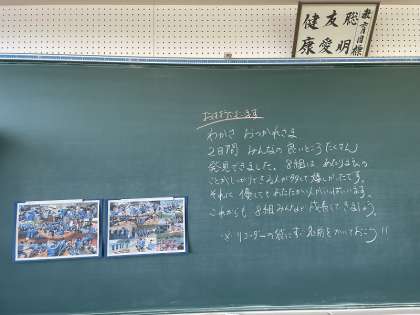 教育目標
聡明
友愛
健康
おはようございます
わかさ おつかれさま
2日間 みんなの良いところ たくさん
発見できました。8組は あたりまえの
ことがしっかりできる人が多くて嬉しかったです。
それに 優しくてあたたかい人がいっぱいいます。
これからも 8組みんなで 成長していきましょう。
※リコーダーの袋に必ず名前をかいておこう!!